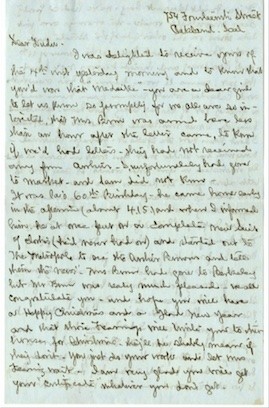 754 Fourteenth Street
Oakland. Cal
Dear Tinder.
I was delighted to receive yours of
the 4th inst yesterday morning, and to know that
you'd won that Medaille - you are a dear girl
to let us know so promptly for we all are so in-
terested, that Mrs. was around here less
than an hour after the letter came, to know
if we'd had letters. They had not received
any from Arthur. Unfortunately I had gone
to market - and Sam did not know -
It was his 60th Birthday - he came home early
in the afternoon (about 4.15) and when I informed
him, he at once put on a complete new suit
of clothes (laid never had on) and started out to
the Metropole to see the Arthur and tell
them the news. Mrs. had gone to Berkeley
but Mr was really much pleased. We all
congratulate you - and hope you will have
a Happy Christmas and a Glad New Year
and that Loring will invite you to their
House for Christmas. They'll be shabby mean if
they don't. You just do your work and let Mrs.
wait - I am very glad you will get
your Certificate whatever you don't get.